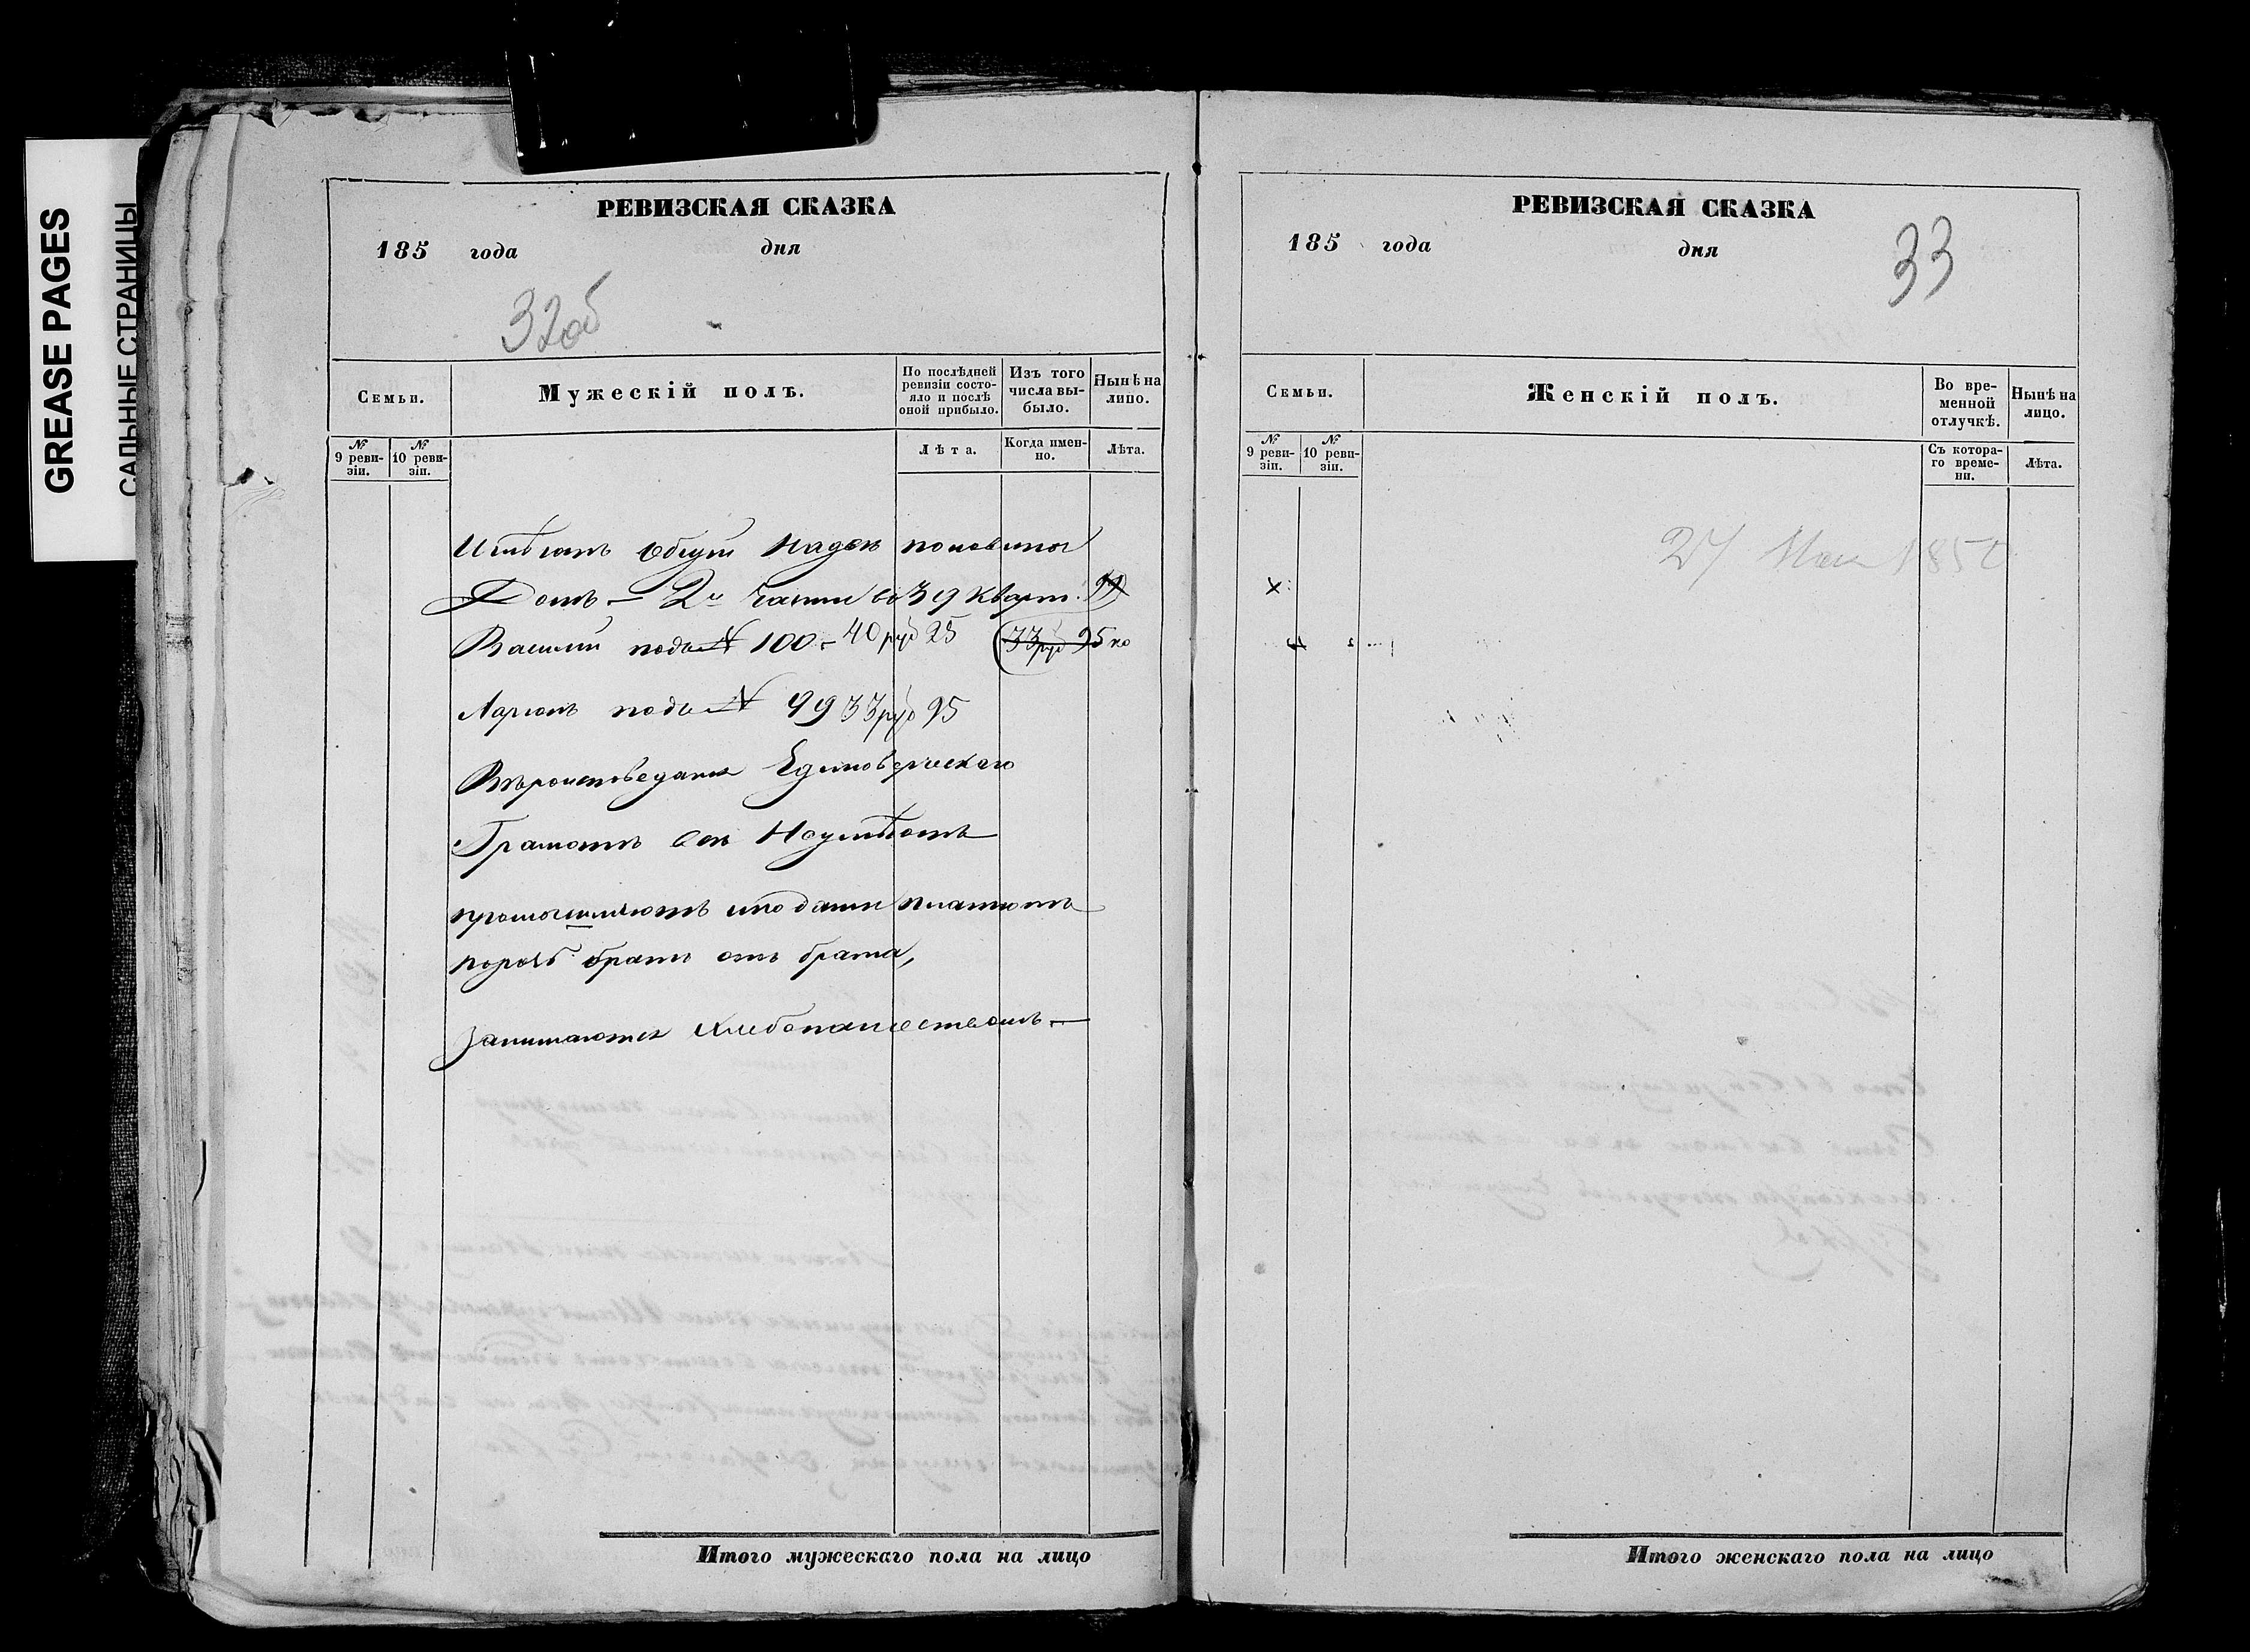 GREASE PAGES
САЛЬНЫЕ СТРАНИЦЫ
РЕВИЗСКАЯ СКАЗКА
185 года дня
32об
Семьи.
Мужескій полъ.
По послѣдней ревизіи состояло и послѣ оной прибыло.
Изъ того числа выбыло.
Нынѣ на лицо.
№ 9 ревизіи.
№ 10 ревизіи.
Лѣта.
Когда именно.
Лѣта.
Имѣютъ общій половиной
Домъ – 2й части въ 39 кварт.
Василий подъ № 100 – 40 руб 25 (33 руб 95 ко
Ларионъ подъ № 99 33 руб 95
Вѣроисповедания Единоверческаго
Грамотѣ все Неумѣютъ
промышляютъ иподати платютъ
порозь братъ отъ брата,
Занимаются хлебопашествомъ –
Итого мужескаго пола на лицо
РЕВИЗСКАЯ СКАЗКА
185 года дня
33
Семьи.
Женскій полъ.
Во временной отлучкѣ.
Нынѣ на лицо.
№ 9 ревизіи.
№ 10 ревизіи.
Съ котораго времени.
Лѣта.
27 Мая 185
Итого женскаго пола на лицо